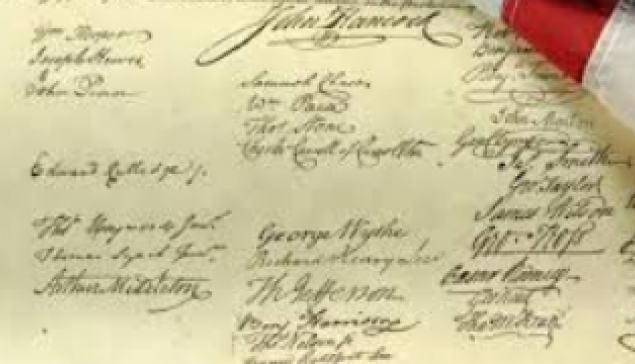 John Hancock
Wm Hooper
Joseph Hewes
John Penn
Edward Rutledge
Thos Heyward Junr
Thomas Lynch Junr
Arthur Middleton
Samuel Chase
Wm Paca
Thos Stone
Charles Carroll of Carrollton
George Wythe
Richard Henry Lee
Th Jefferson
Benj Harrison
Thos Nelson jr
John Morton
Geo Clymer
Jas Smith
Geo Taylor
James Wilson
Geo. Ross
Caesar Rodney
Geo Read
Tho M:Kean